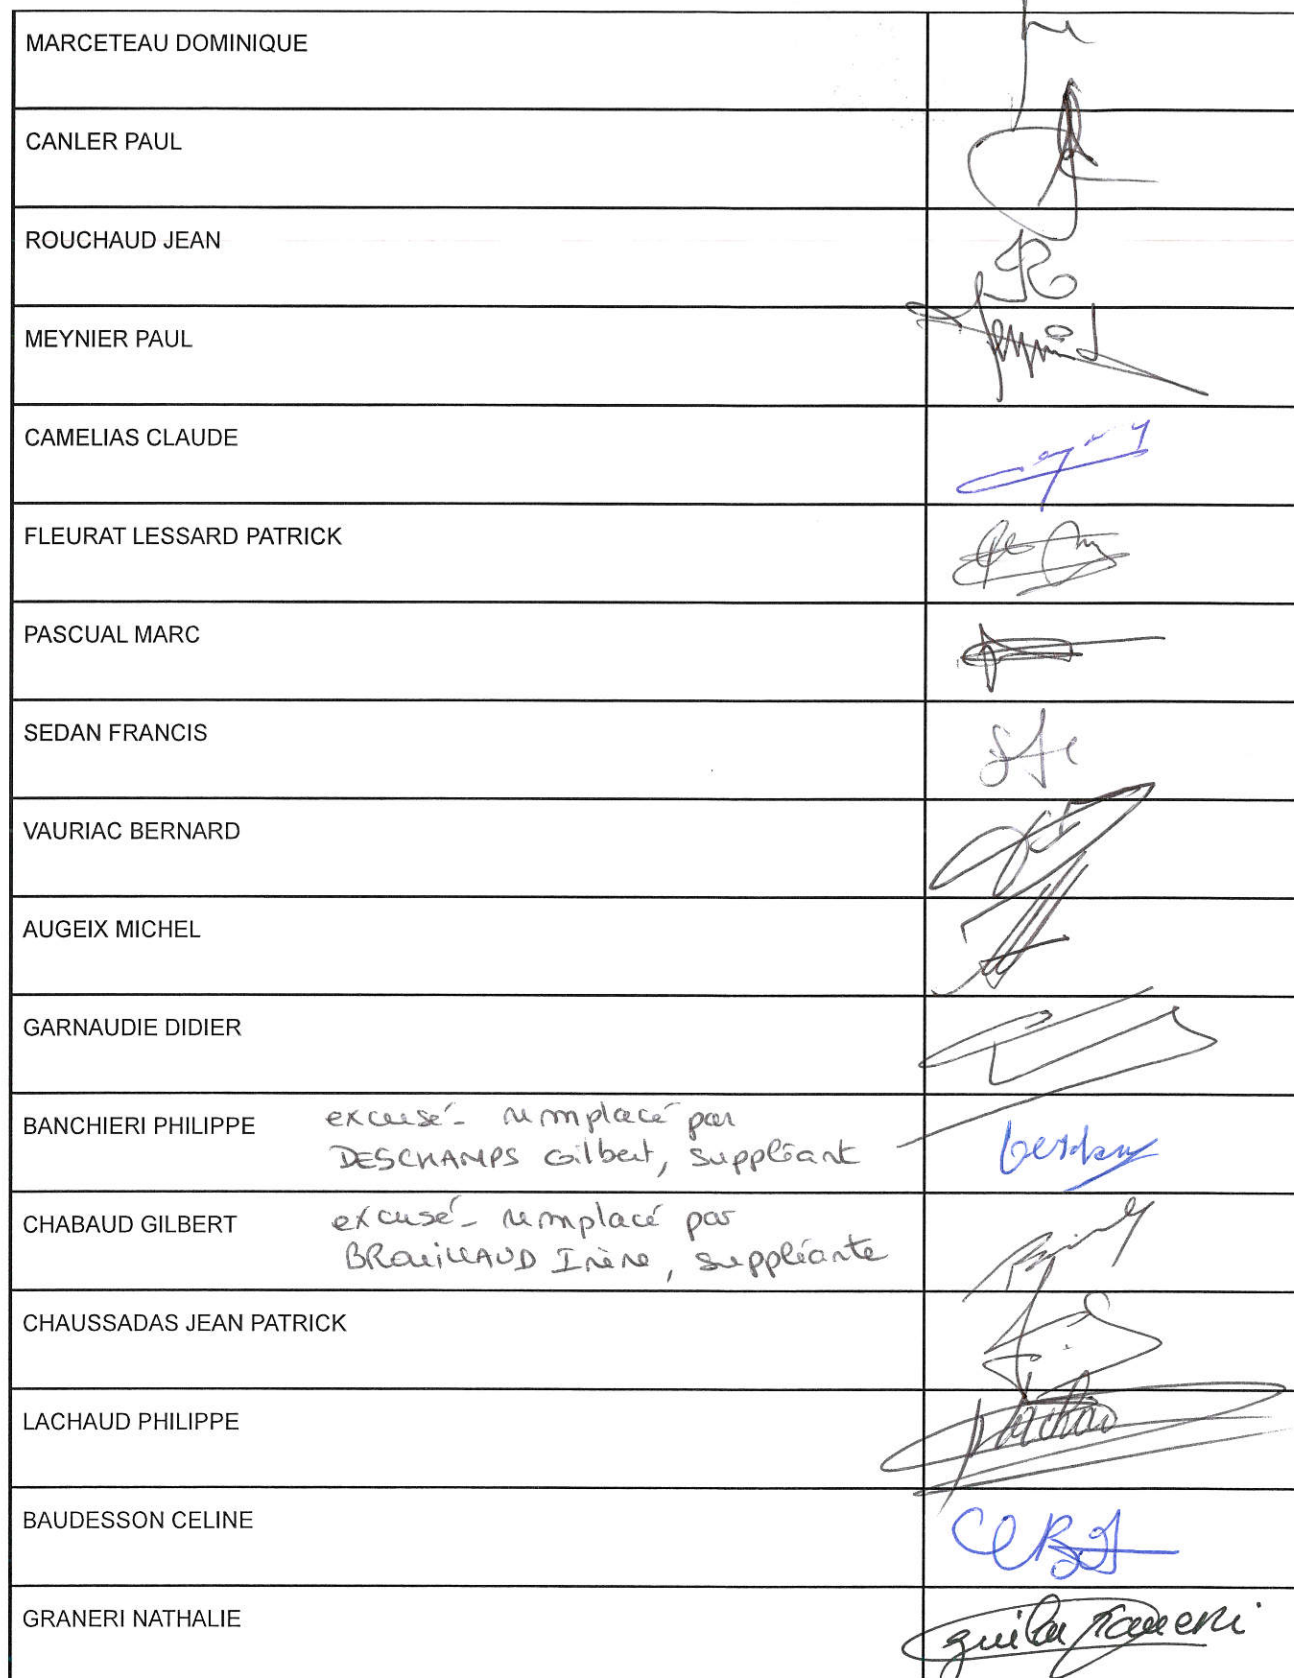 MARCETEAU DOMINIQUE
CANLER PAUL
ROUCHAUD JEAN
MEYNIER PAUL
CAMELIAS CLAUDE
FLEURAT LESSARD PATRICK
PASCUAL MARC
SEDAN FRANCIS
VAURIAC BERNARD
AUGEIX MICHEL
GARNAUDIE DIDIER
BANCHIERI PHILIPPE excusé - remplacé par
DESCHAMPS Gilbert, suppléant
CHABAUD GILBERT excusé - remplacé par
BROUILLAUD Irène, suppléante
CHAUSSADAS JEAN PATRICK
LACHAUD PHILIPPE
BAUDESSON CELINE
GRANERI NATHALIE